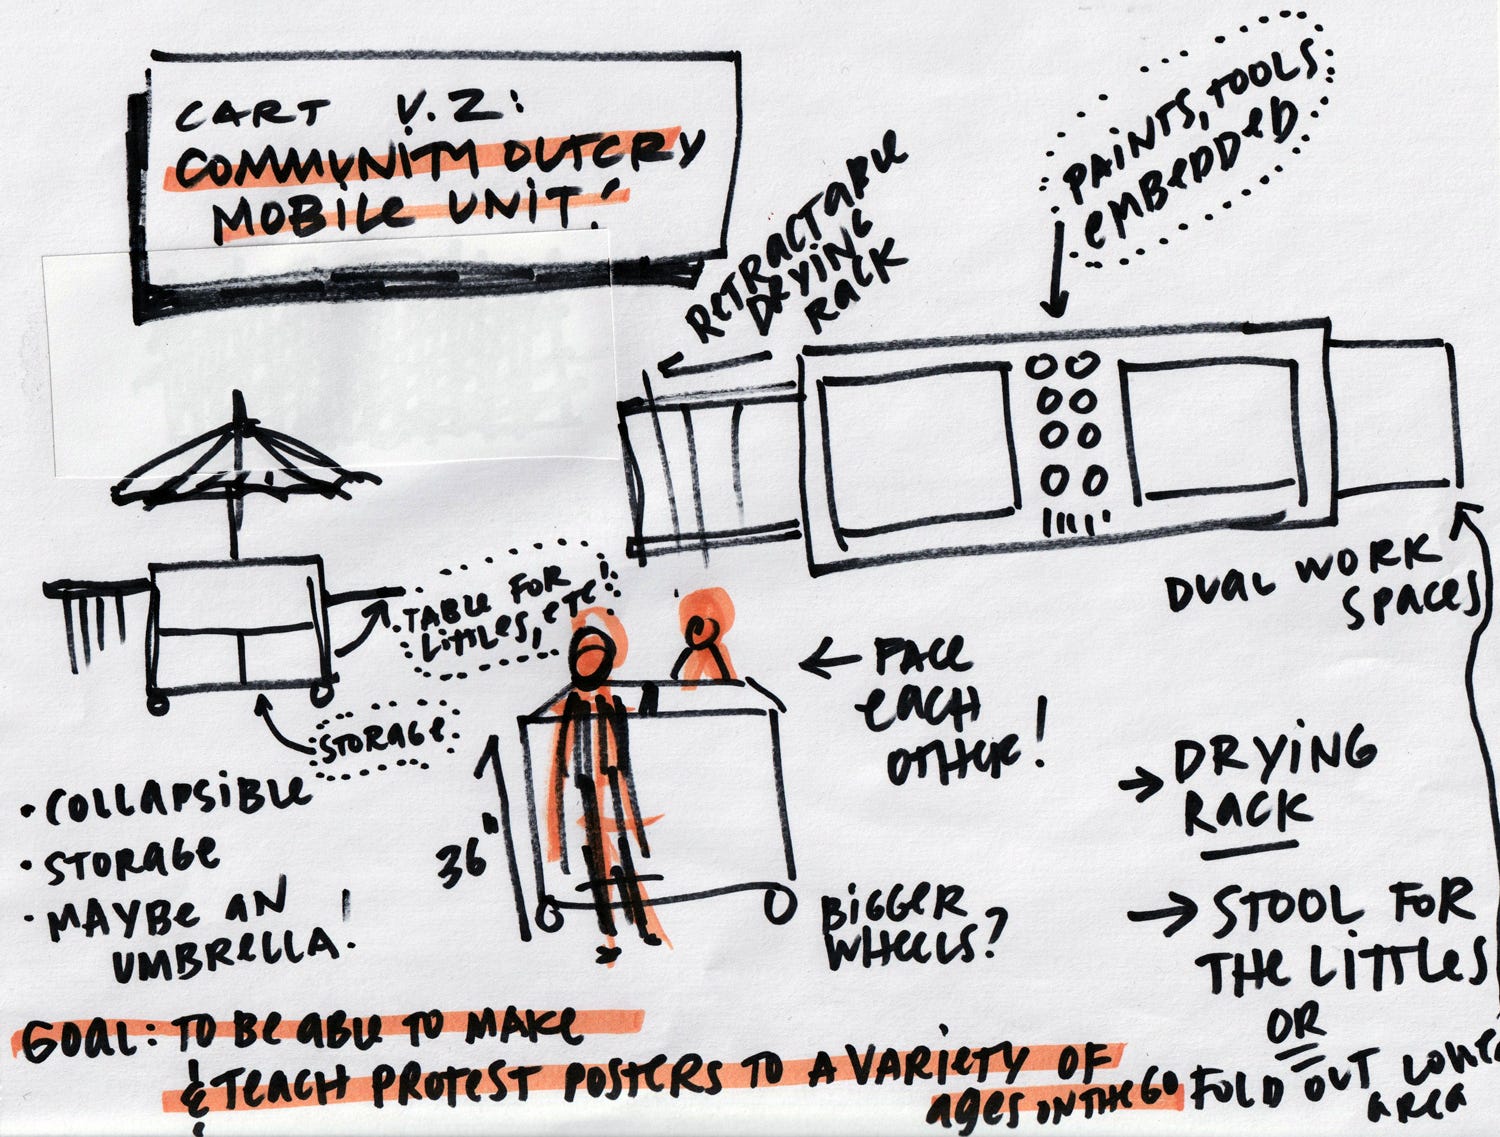 CART V.2:
COMMUNITY OUTCRY
MOBILE UNIT!
RETRACTABLE
DRYING
RACK
PAINTS, TOOLS
EMBEDDED
DUAL WORK
SPACES
TABLE FOR
LITTLES, etc!
STORAGE
FACE
EACH
OTHER!
36"
• COLLAPSIBLE
• STORAGE
• MAYBE AN
UMBRELLA!
BIGGER
WHEELS?
→ DRYING
RACK
→ STOOL FOR
THE LITTLES
OR
FOLD OUT LOWER
AREA
GOAL: TO BE ABLE TO MAKE
& TEACH PROTEST POSTERS TO A VARIETY OF
AGES ON THE GO